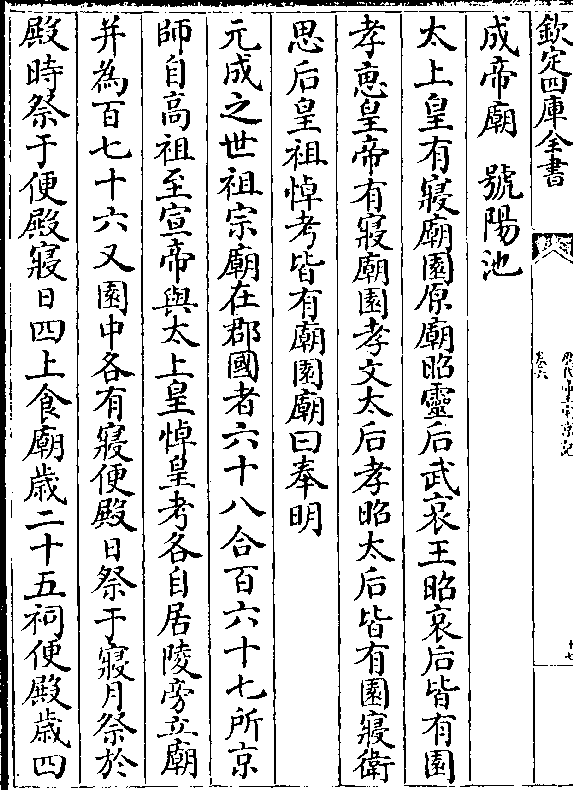 欽定四庫全書
卷六
成帝廟　號陽池
太上皇有寢廟園原廟昭靈后武哀王昭哀后皆有園
孝惠皇帝有寢廟園孝文太后孝昭太后皆有園寢衛
思后皇祖悼考皆有廟園廟曰奉明
元成之世祖宗廟在郡國者六十八合百六十七所京
師自高祖至宣帝與太上皇悼皇考各自居陵旁立廟
并為百七十六又園中各有寢便殿日祭于寢月祭於
殿時祭于便殿寢日四上食廟歲二十五祠便殿歲四